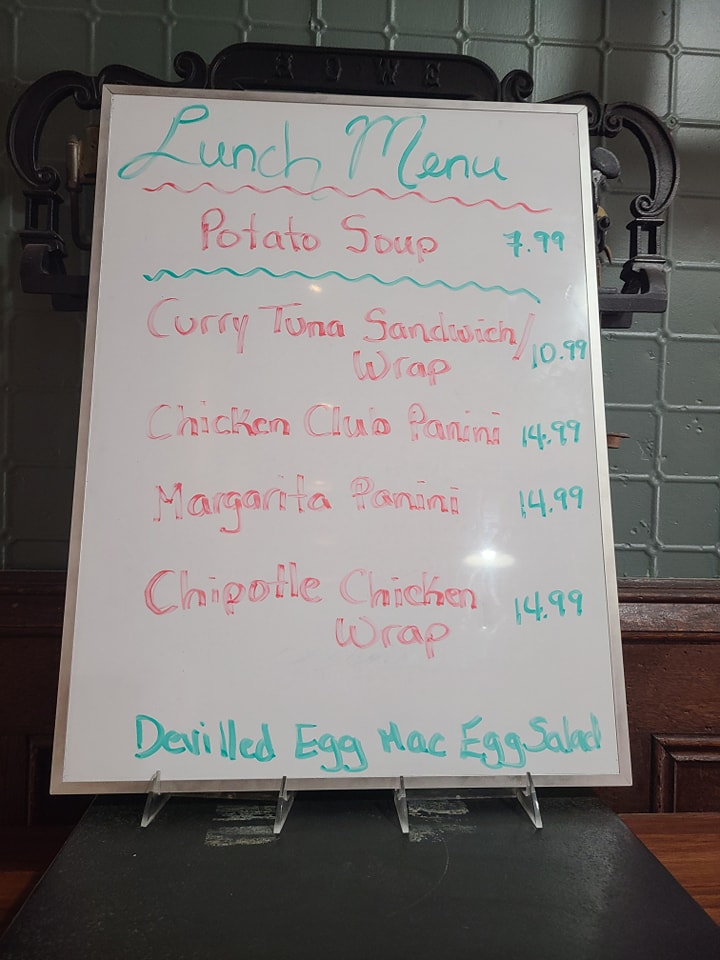 HOWE
Lunch Menu
Potato Soup 7.99
Curry Tuna Sandwich/
Wrap 10.99
Chicken Club Panini 14.99
Margarita Panini 14.99
Chipotle Chicken
Wrap 14.99
Devilled Egg Mac Egg Salad